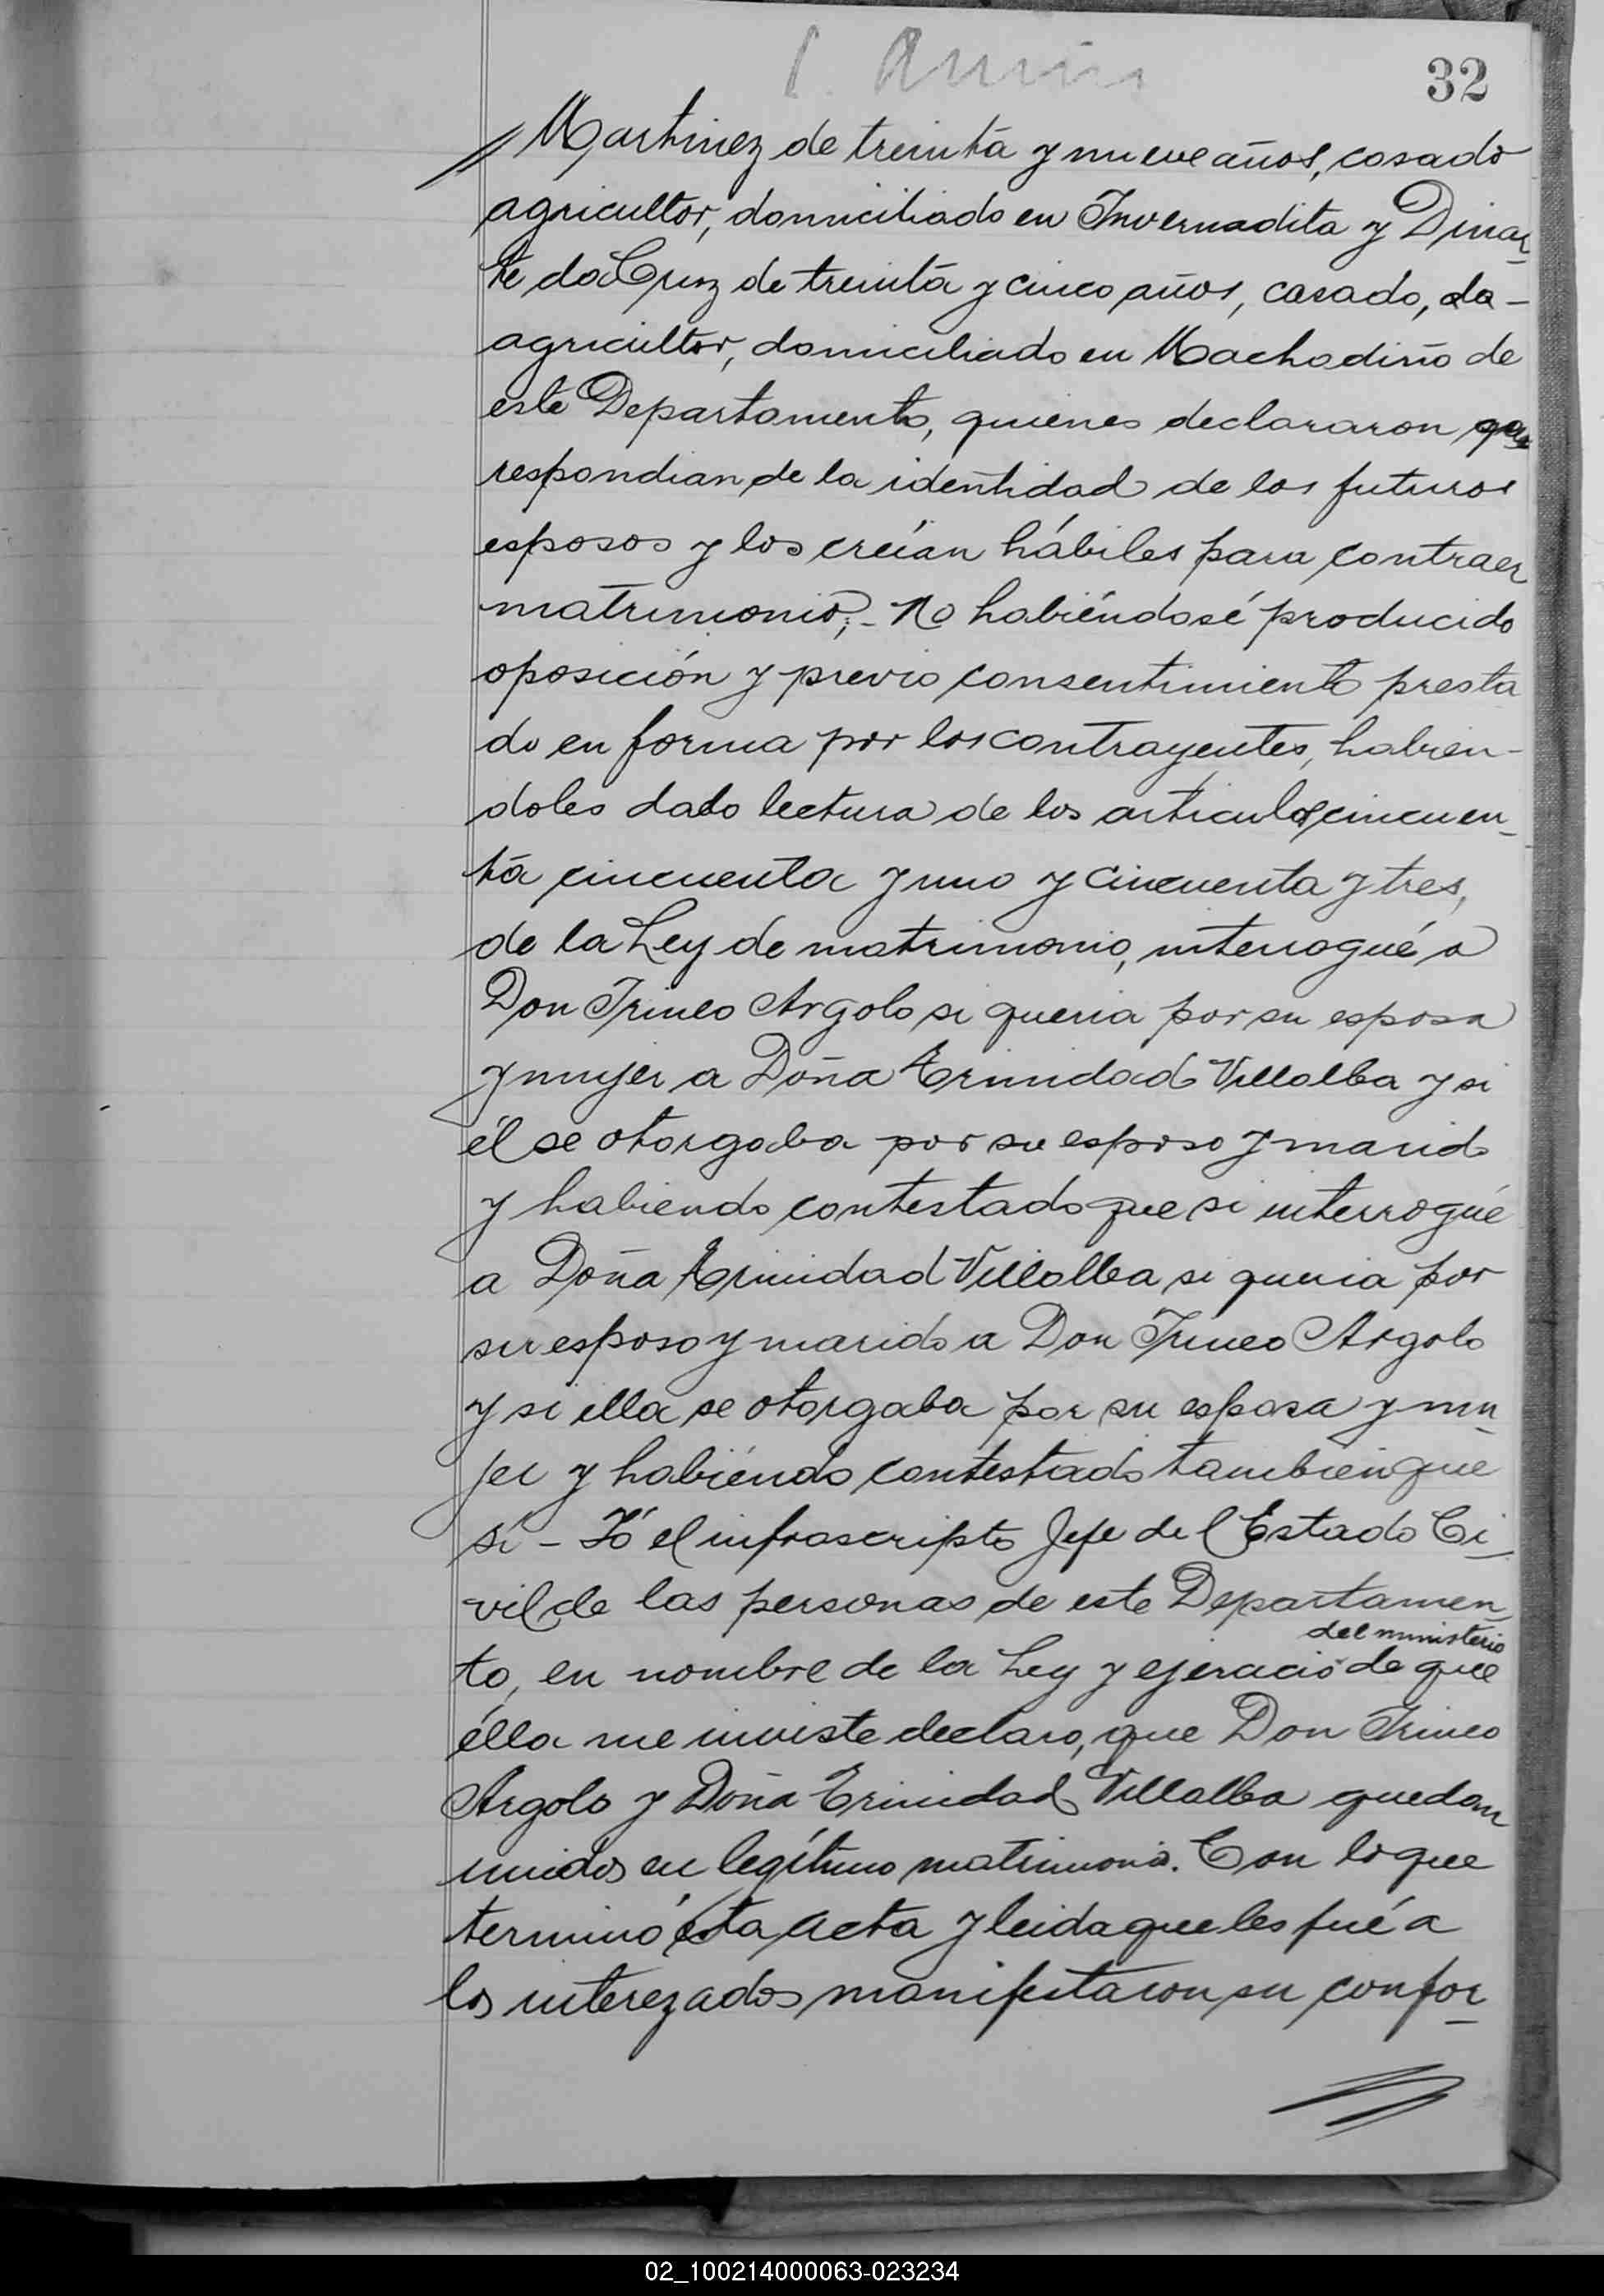 32
Martinez de treinta y nueve años, casado
agricultor, domiciliado en Invernadita y Dinar-
te da Cruz de treinta y cinco años, casado, da-
agricultor, domiciliado en Machadiño de
este Departamento, quienes declararon que
respondian de la identidad de los futuros
esposos y los creían hábiles para contraer
matrimonio;- No habiéndosé producido
oposición y previo consentimiento presta
do en forma por los contrayentes, habien-
doles dado lectura de los articulos cincuen-
ta cincuenta y uno y cincuenta y tres,
de la Ley de matrimonio, interrogué a
Don Irineo Argolo si queria por su esposa
y mujer a Doña Trinidad Villalba y si
él se otorgaba por su esposo y marido
y habiendo contestado que si interrogué
a Doña Trinidad Villalba si queria por
su esposo y marido a Don Irineo Argolo
y si ella se otorgaba por su esposa y mu-
jer y habiéndo contestado tambien que
si - Yó el infrascripto Jefe del Estado Ci-
vil de las personas de este Departamen
del ministerio
to, en nombre de la Ley y ejercicio de que
élla me inviste declaro, que Don Irineo
Argolo y Doña Trinidad Villalba quedan
unidos en legítimo matrimonio. Con lo que
terminó ésta acta y leida que les fué a
los interezados manifestaron su confor-
02_100214000063-023234